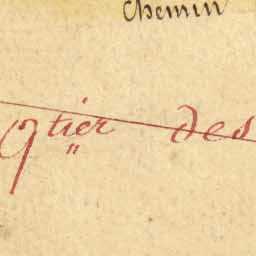 Chemin
Qtier des